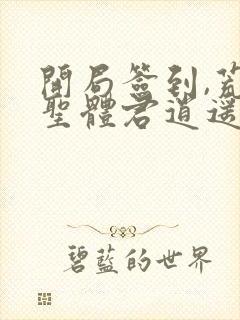 開局簽到,荒
聖體君逍遥
碧藍的世界